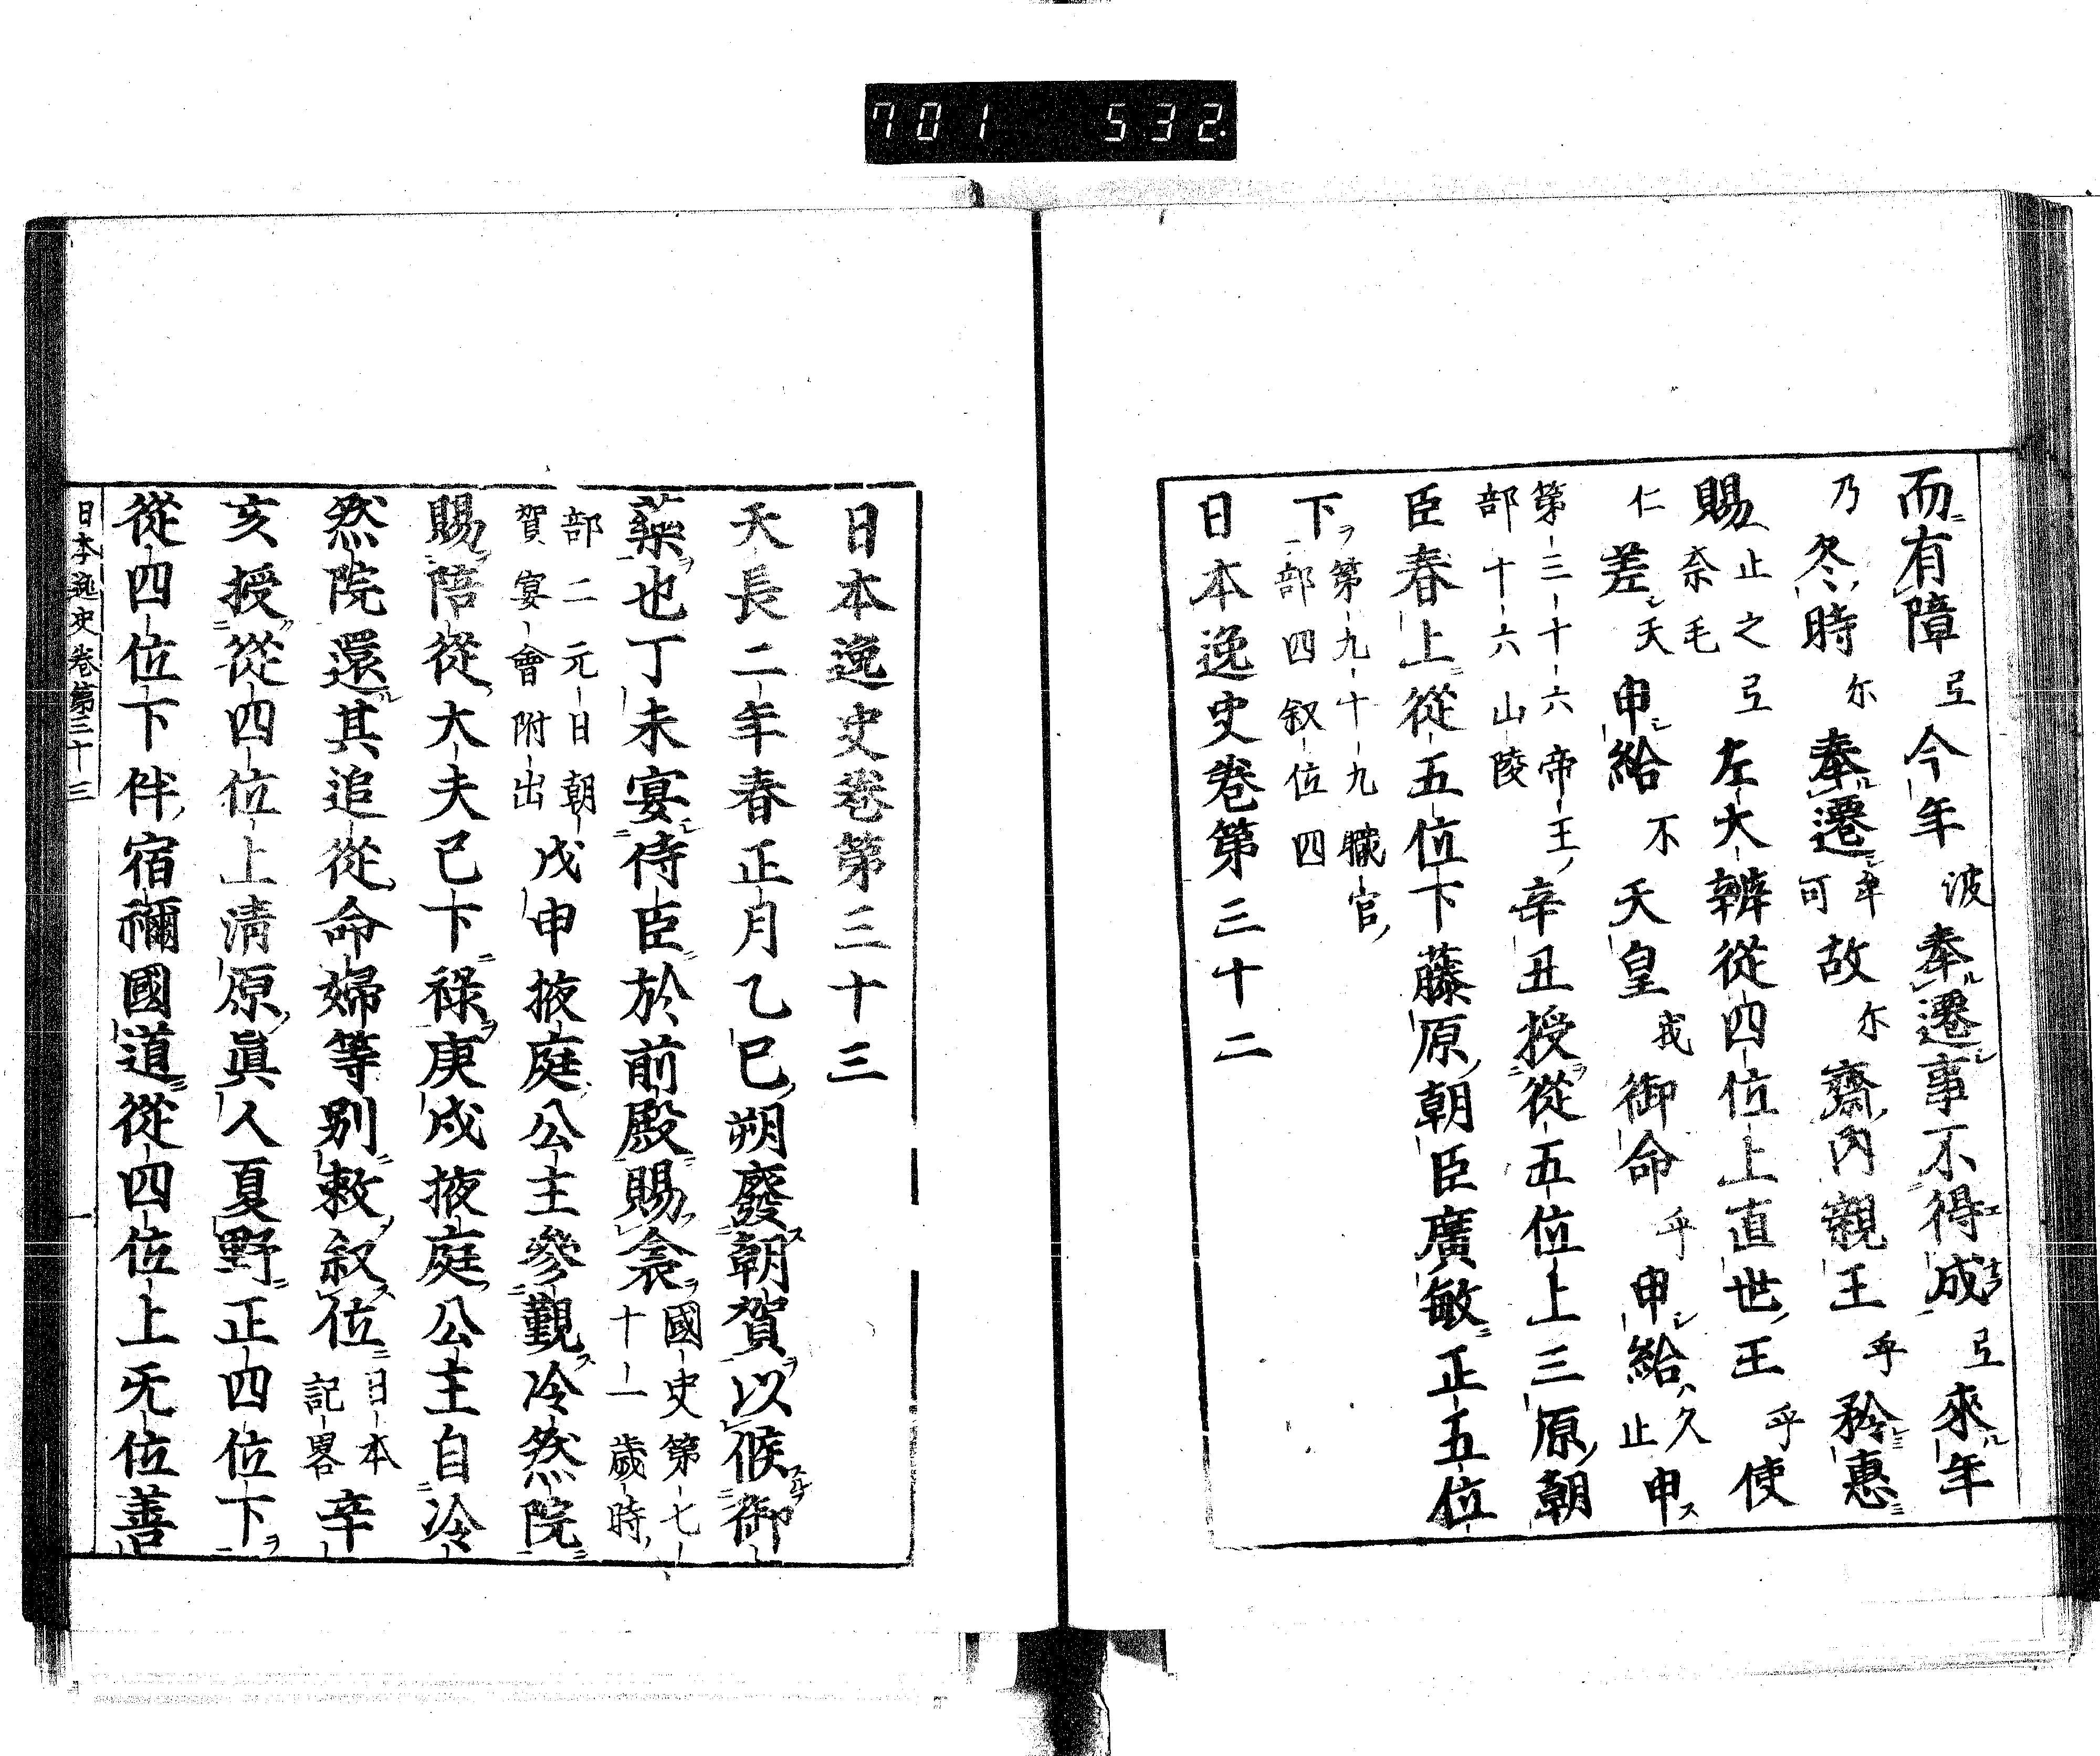 701 532
而有障弖今年波奉遷事不得成弖來年
乃冬時尓奉遷牟可故尓齋内親王乎矜惠
賜止之奈毛弖左大辨從四位上直世王乎使
仁差天申給不天皇我御命乎申給久止申
第三十六帝王部十六山陵辛丑授從五位上三原朝
臣春上從五位下藤原朝臣廣敏正五位
下第九十九職官部四叙位四
日本逸史卷第三十二
日本逸史卷第三十三
天長二年春正月乙巳朔廢朝賀以候御
藥也丁未宴侍臣於前殿賜衾國史第七十一歲時
部二元日朝賀宴會附出戊申掖庭公主參覲冷然院
賜陪從大夫已下祿庚戌掖庭公主自冷
然院還其追從命婦等別敕叙位日本記畧辛
亥授從四位上淸原眞人夏野正四位下
從四位下伴宿禰國道從四位上无位善
日本逸史卷第三十三 一